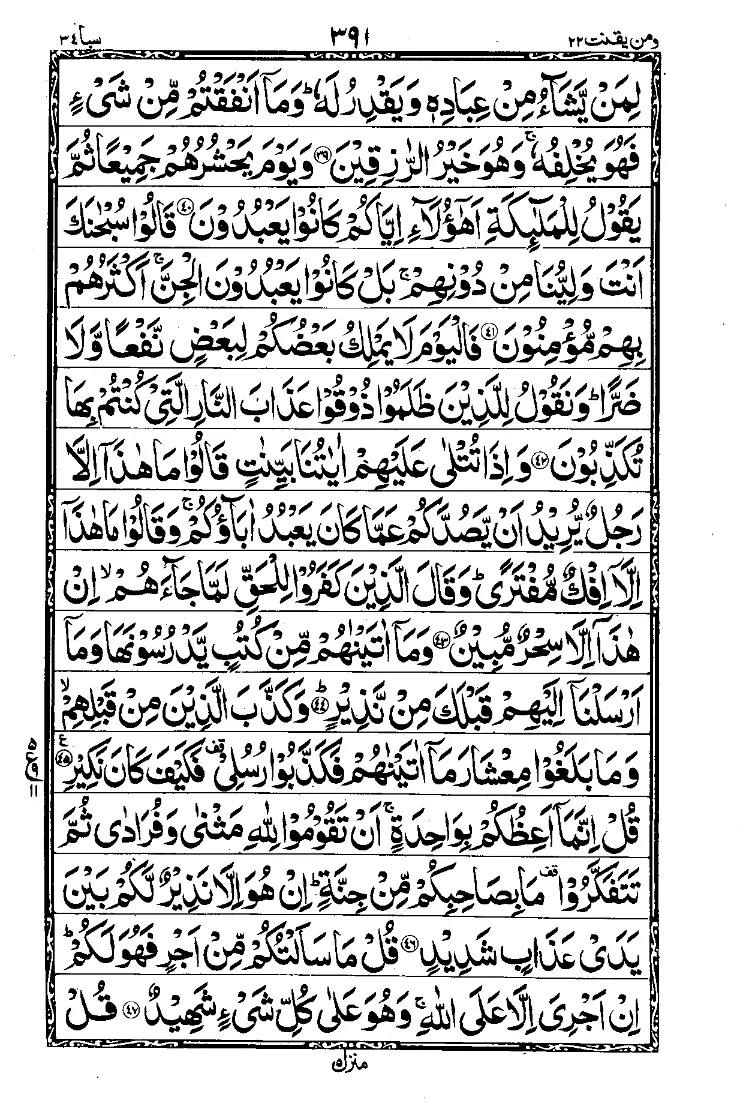 ومن يقنت ٢٢ ٣٩١ سبا ٣٤
لِمَنْ يَّشَآءُ مِنْ عِبَادِهٖ وَيَقْدِرُ لَهٗ ؕ وَمَاۤ اَنْفَقْتُمْ مِّنْ شَىْءٍ
فَهُوَ يُخْلِفُهٗ ۚ وَهُوَ خَيْرُ الرّٰزِقِيْنَ ﴿٣٩﴾ وَيَوْمَ يَحْشُرُهُمْ جَمِيْعًا ثُمَّ
يَقُوْلُ لِلْمَلٰٓئِكَةِ اَهٰٓؤُلَآءِ اِيَّاكُمْ كَانُوْا يَعْبُدُوْنَ ﴿٤٠﴾ قَالُوْا سُبْحٰنَكَ
اَنْتَ وَلِيُّنَا مِنْ دُوْنِهِمْ ۚ بَلْ كَانُوْا يَعْبُدُوْنَ الْجِنَّ ۚ اَكْثَرُهُمْ
بِهِمْ مُّؤْمِنُوْنَ ﴿٤١﴾ فَالْيَوْمَ لَا يَمْلِكُ بَعْضُكُمْ لِبَعْضٍ نَّفْعًا وَّلَا
ضَرًّا ؕ وَنَقُوْلُ لِلَّذِيْنَ ظَلَمُوْا ذُوْقُوْا عَذَابَ النَّارِ الَّتِىْ كُنْتُمْ بِهَا
تُكَذِّبُوْنَ ﴿٤٢﴾ وَاِذَا تُتْلٰى عَلَيْهِمْ اٰيٰتُنَا بَيِّنٰتٍ قَالُوْا مَا هٰذَاۤ اِلَّا
رَجُلٌ يُّرِيْدُ اَنْ يَّصُدَّكُمْ عَمَّا كَانَ يَعْبُدُ اٰبَآؤُكُمْ ۚ وَقَالُوْا مَا هٰذَاۤ
اِلَّاۤ اِفْكٌ مُّفْتَرًى ؕ وَقَالَ الَّذِيْنَ كَفَرُوْا لِلْحَقِّ لَمَّا جَآءَهُمْ ۙ اِنْ
هٰذَاۤ اِلَّا سِحْرٌ مُّبِيْنٌ ﴿٤٣﴾ وَمَاۤ اٰتَيْنٰهُمْ مِّنْ كُتُبٍ يَّدْرُسُوْنَهَا وَمَاۤ
اَرْسَلْنَاۤ اِلَيْهِمْ قَبْلَكَ مِنْ نَّذِيْرٍ ؕ ﴿٤٤﴾ وَكَذَّبَ الَّذِيْنَ مِنْ قَبْلِهِمْ ۙ
وَمَا بَلَغُوْا مِعْشَارَ مَاۤ اٰتَيْنٰهُمْ فَكَذَّبُوْا رُسُلِىْ قف فَكَيْفَ كَانَ نَكِيْرِ ع ﴿٤٥﴾
قُلْ اِنَّمَاۤ اَعِظُكُمْ بِوَاحِدَةٍ ۚ اَنْ تَقُوْمُوْا لِلّٰهِ مَثْنٰى وَفُرَادٰى ثُمَّ
تَتَفَكَّرُوْا قف مَا بِصَاحِبِكُمْ مِّنْ جِنَّةٍ ؕ اِنْ هُوَ اِلَّا نَذِيْرٌ لَّكُمْ بَيْنَ
يَدَىْ عَذَابٍ شَدِيْدٍ ﴿٤٦﴾ قُلْ مَا سَاَلْتُكُمْ مِّنْ اَجْرٍ فَهُوَ لَكُمْ ؕ
اِنْ اَجْرِىَ اِلَّا عَلَى اللّٰهِ ۚ وَهُوَ عَلٰى كُلِّ شَىْءٍ شَهِيْدٌ ﴿٤٧﴾ قُلْ
منزل ٥